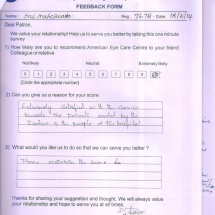 FEEDBACK FORM
Name : Reg. 7678 Date 18/6/14
Dear Patron,
We value your relationship! Help us to serve you better by taking this one minute
survey
1) How likely are you to recommend American Eye Care Centre to your friend
Colleague or relative
Not likely Neutral Extremely likely
0 1 2 3 4 5 6 7 8
(Circle the appropriate number)
2) Can you give us a reason for your score?
Extremely satisfied with the service
towards the patients
the people at the hospital
3) What would you like us to do so that we can serve you better ?
maintain the same
Thanks for sharing your suggestion and thought. We will always value
your relationship and hope to serve you at all times.